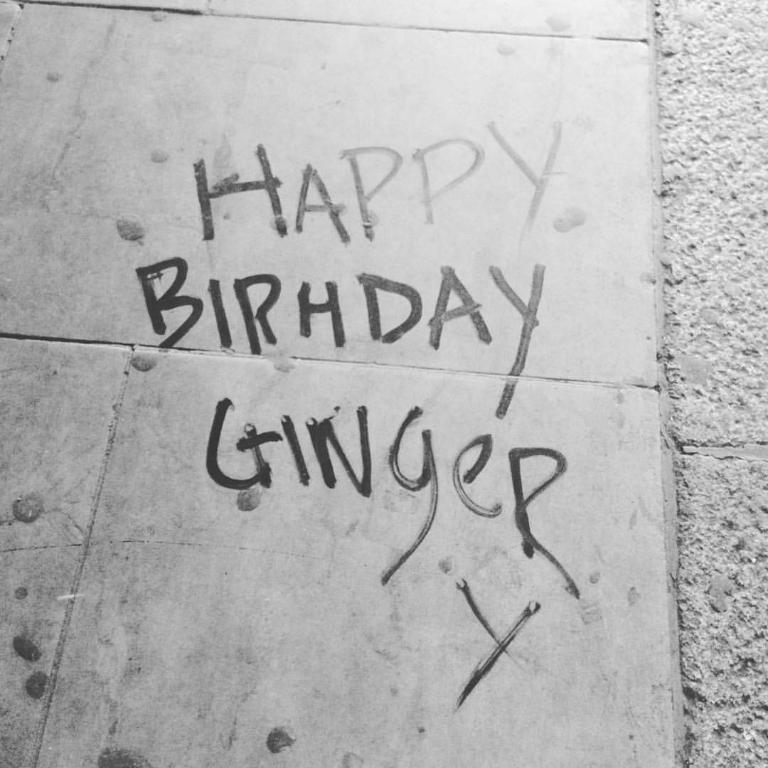 HAPPY
BIRHDAY
GINgeR
X